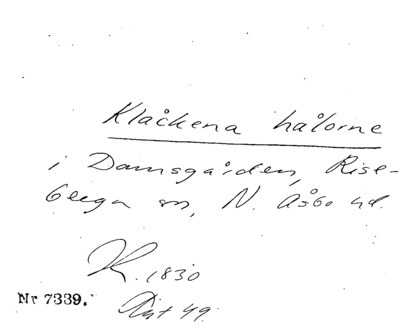 Klåckena hålorne
i Damsgården, Rise-
berga sn, N. Åsbo hd.
K. 1830
Nr 7339.
49.